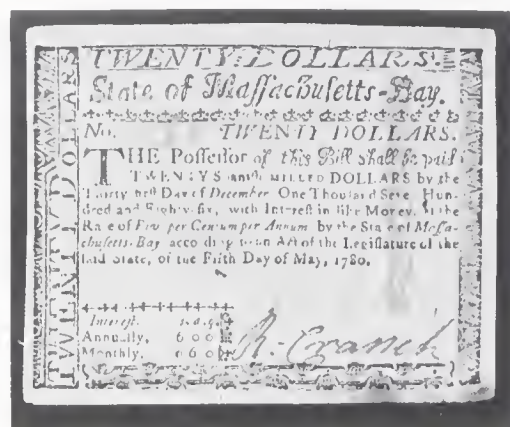 TWENTY DOLLARS.
State of Maſſachuſetts-Bay.
No. TWENTY DOLLARS.
THE Poſſeſſor of this Bill ſhall be paid
TWENTY Spaniſh MILLED DOLLARS by the
Thirty firſt Day of December One Thouſand Seven Hun-
dred and Eighty-ſix, with Intereſt in like Money, at the
Rate of Five per Centum per Annum, by the State of Maſſa-
chuſetts-Bay according to an Act of the Legiſlature of the
ſaid State, of the Fifth Day of May, 1780.
Intereſt. s. d. q.
Annually, 6 0 0
Monthly, 0 6 0
R. Cranch
TWENTY DOLLARS